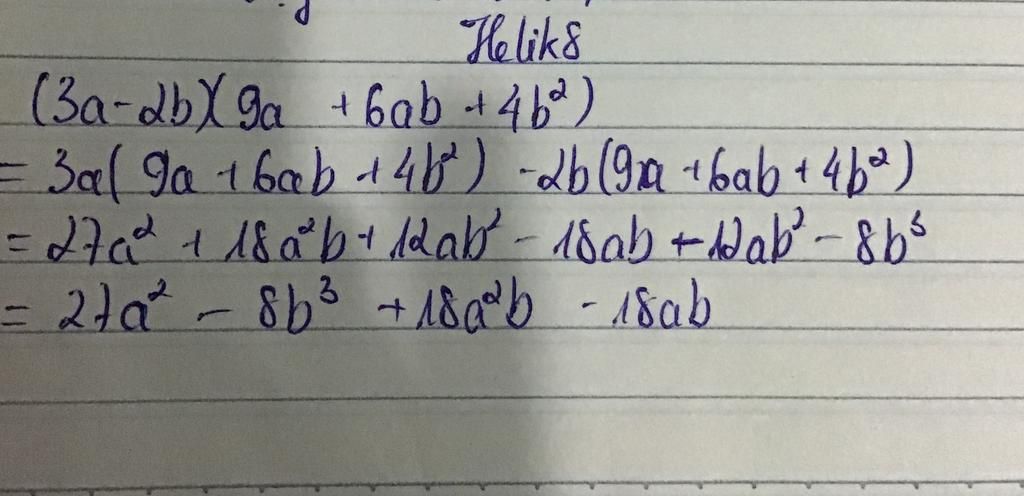 Helik8
(3a-2b)(9a +6ab +4b²)
= 3a(9a +6ab +4b²) -2b(9a +6ab +4b²)
= 27a² + 18a²b + 12ab² - 18ab + 12ab² - 8b³
= 27a² - 8b³ +18a²b -18ab